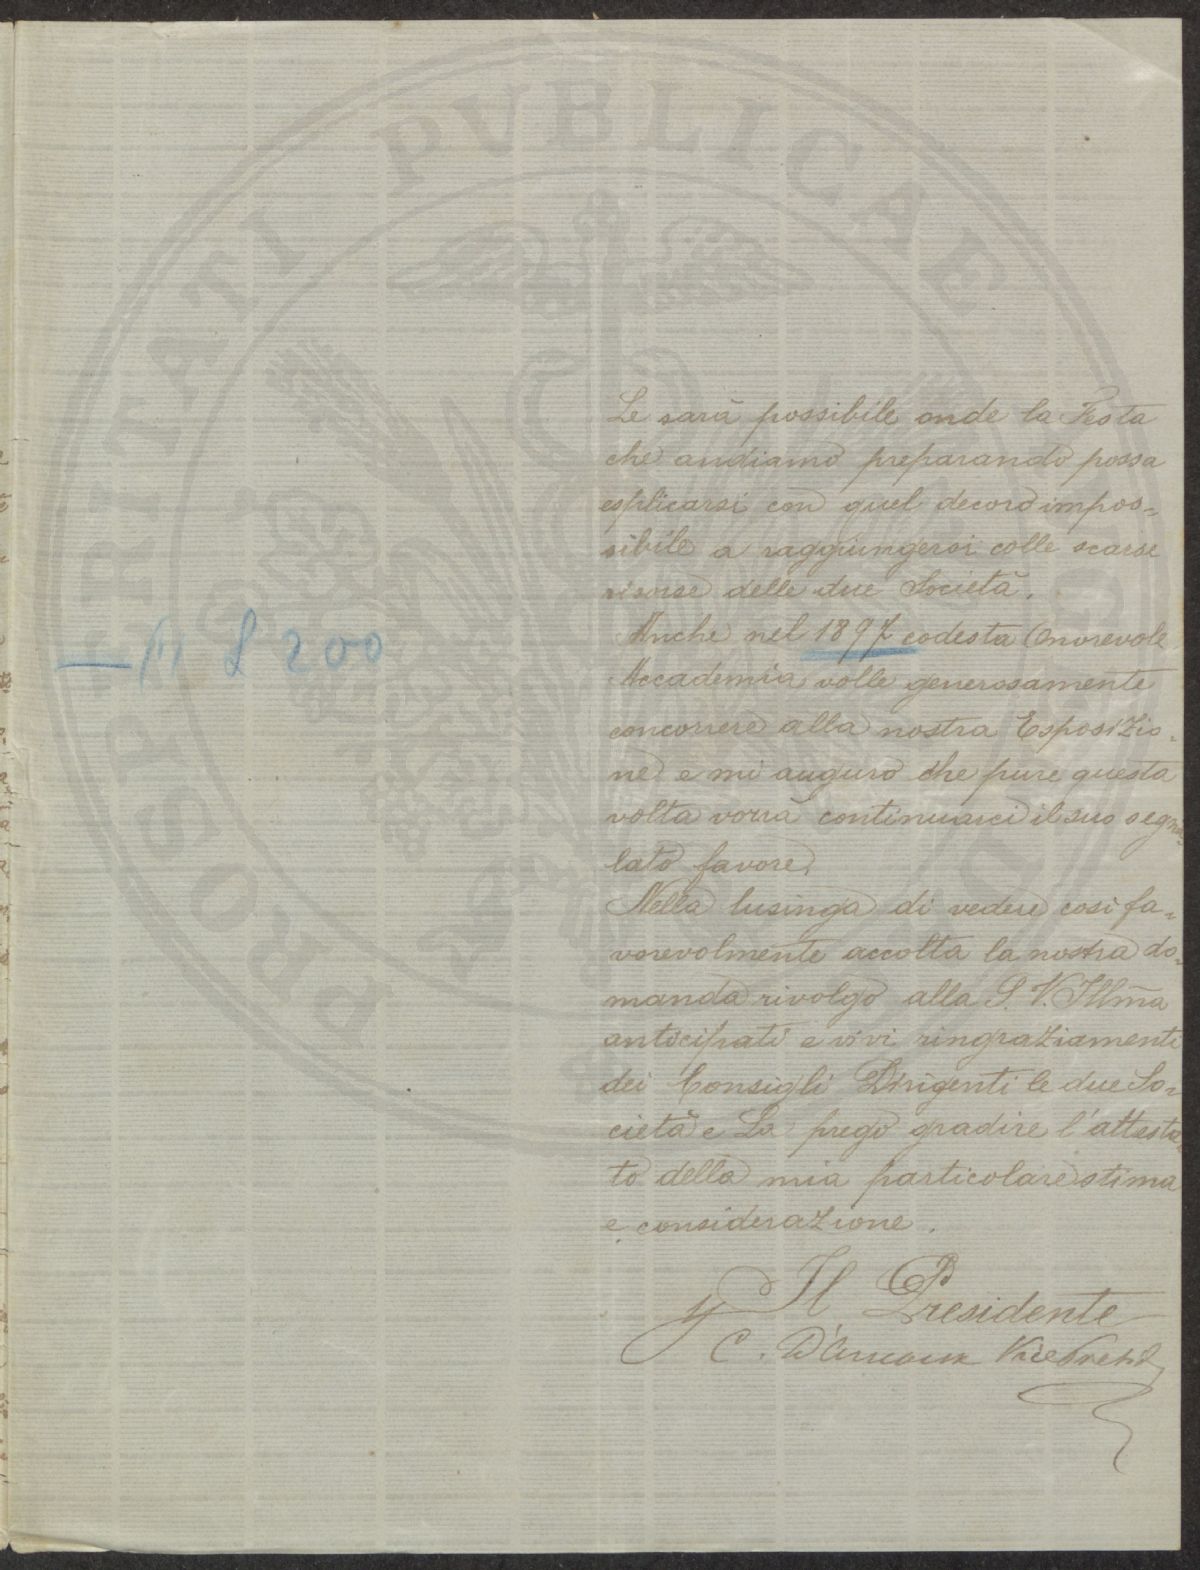 Le sarà possibile onde la Festa
che andiamo preparando possa
esplicarsi con quel decoro impos=
sibile a raggiungersi colle scarse
risorse delle due Società.
Anche nel 1897 codesta Onorevole
Accademia volle generosamente
concorrere alla nostra Esposizio=
ne e mi auguro che pure questa
volta vorrà continuarci il suo segna=
lato favore.
Nella lusinga di vedere così fa=
vorevolmente accolta la nostra do=
manda rivolgo alla S. V. Illma
anticipati e vivi ringraziamenti
dei Consigli Dirigenti le due So=
cietà e La prego gradire l'attesta=
to della mia particolare stima
e considerazione.
Il Presidente
C. Vice Presid
£ 200
PROSPERITATI PUBLICAE